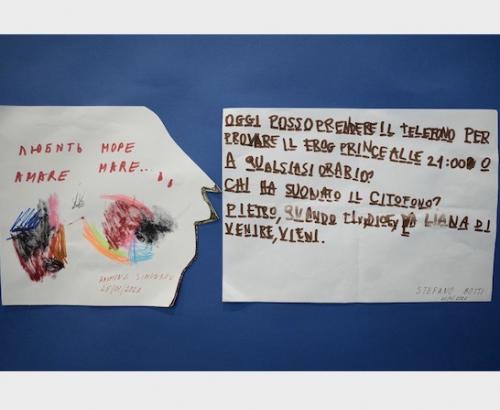 ЛЮБИТЬ МОРЕ
AMARE MARE..
25/01/2022
OGGI POSSO PRENDERE IL TELEFONO PER
PROVARE IL FROG PRINCE ALLE 21:00 O
A QUALSIASI ORARIO?
CHI HA SUONATO IL CITOFONO?
PIETRO, QUANDO TI DICE, LA LIANA DI
VENIRE, VIENI.
STEFANO BOSSI